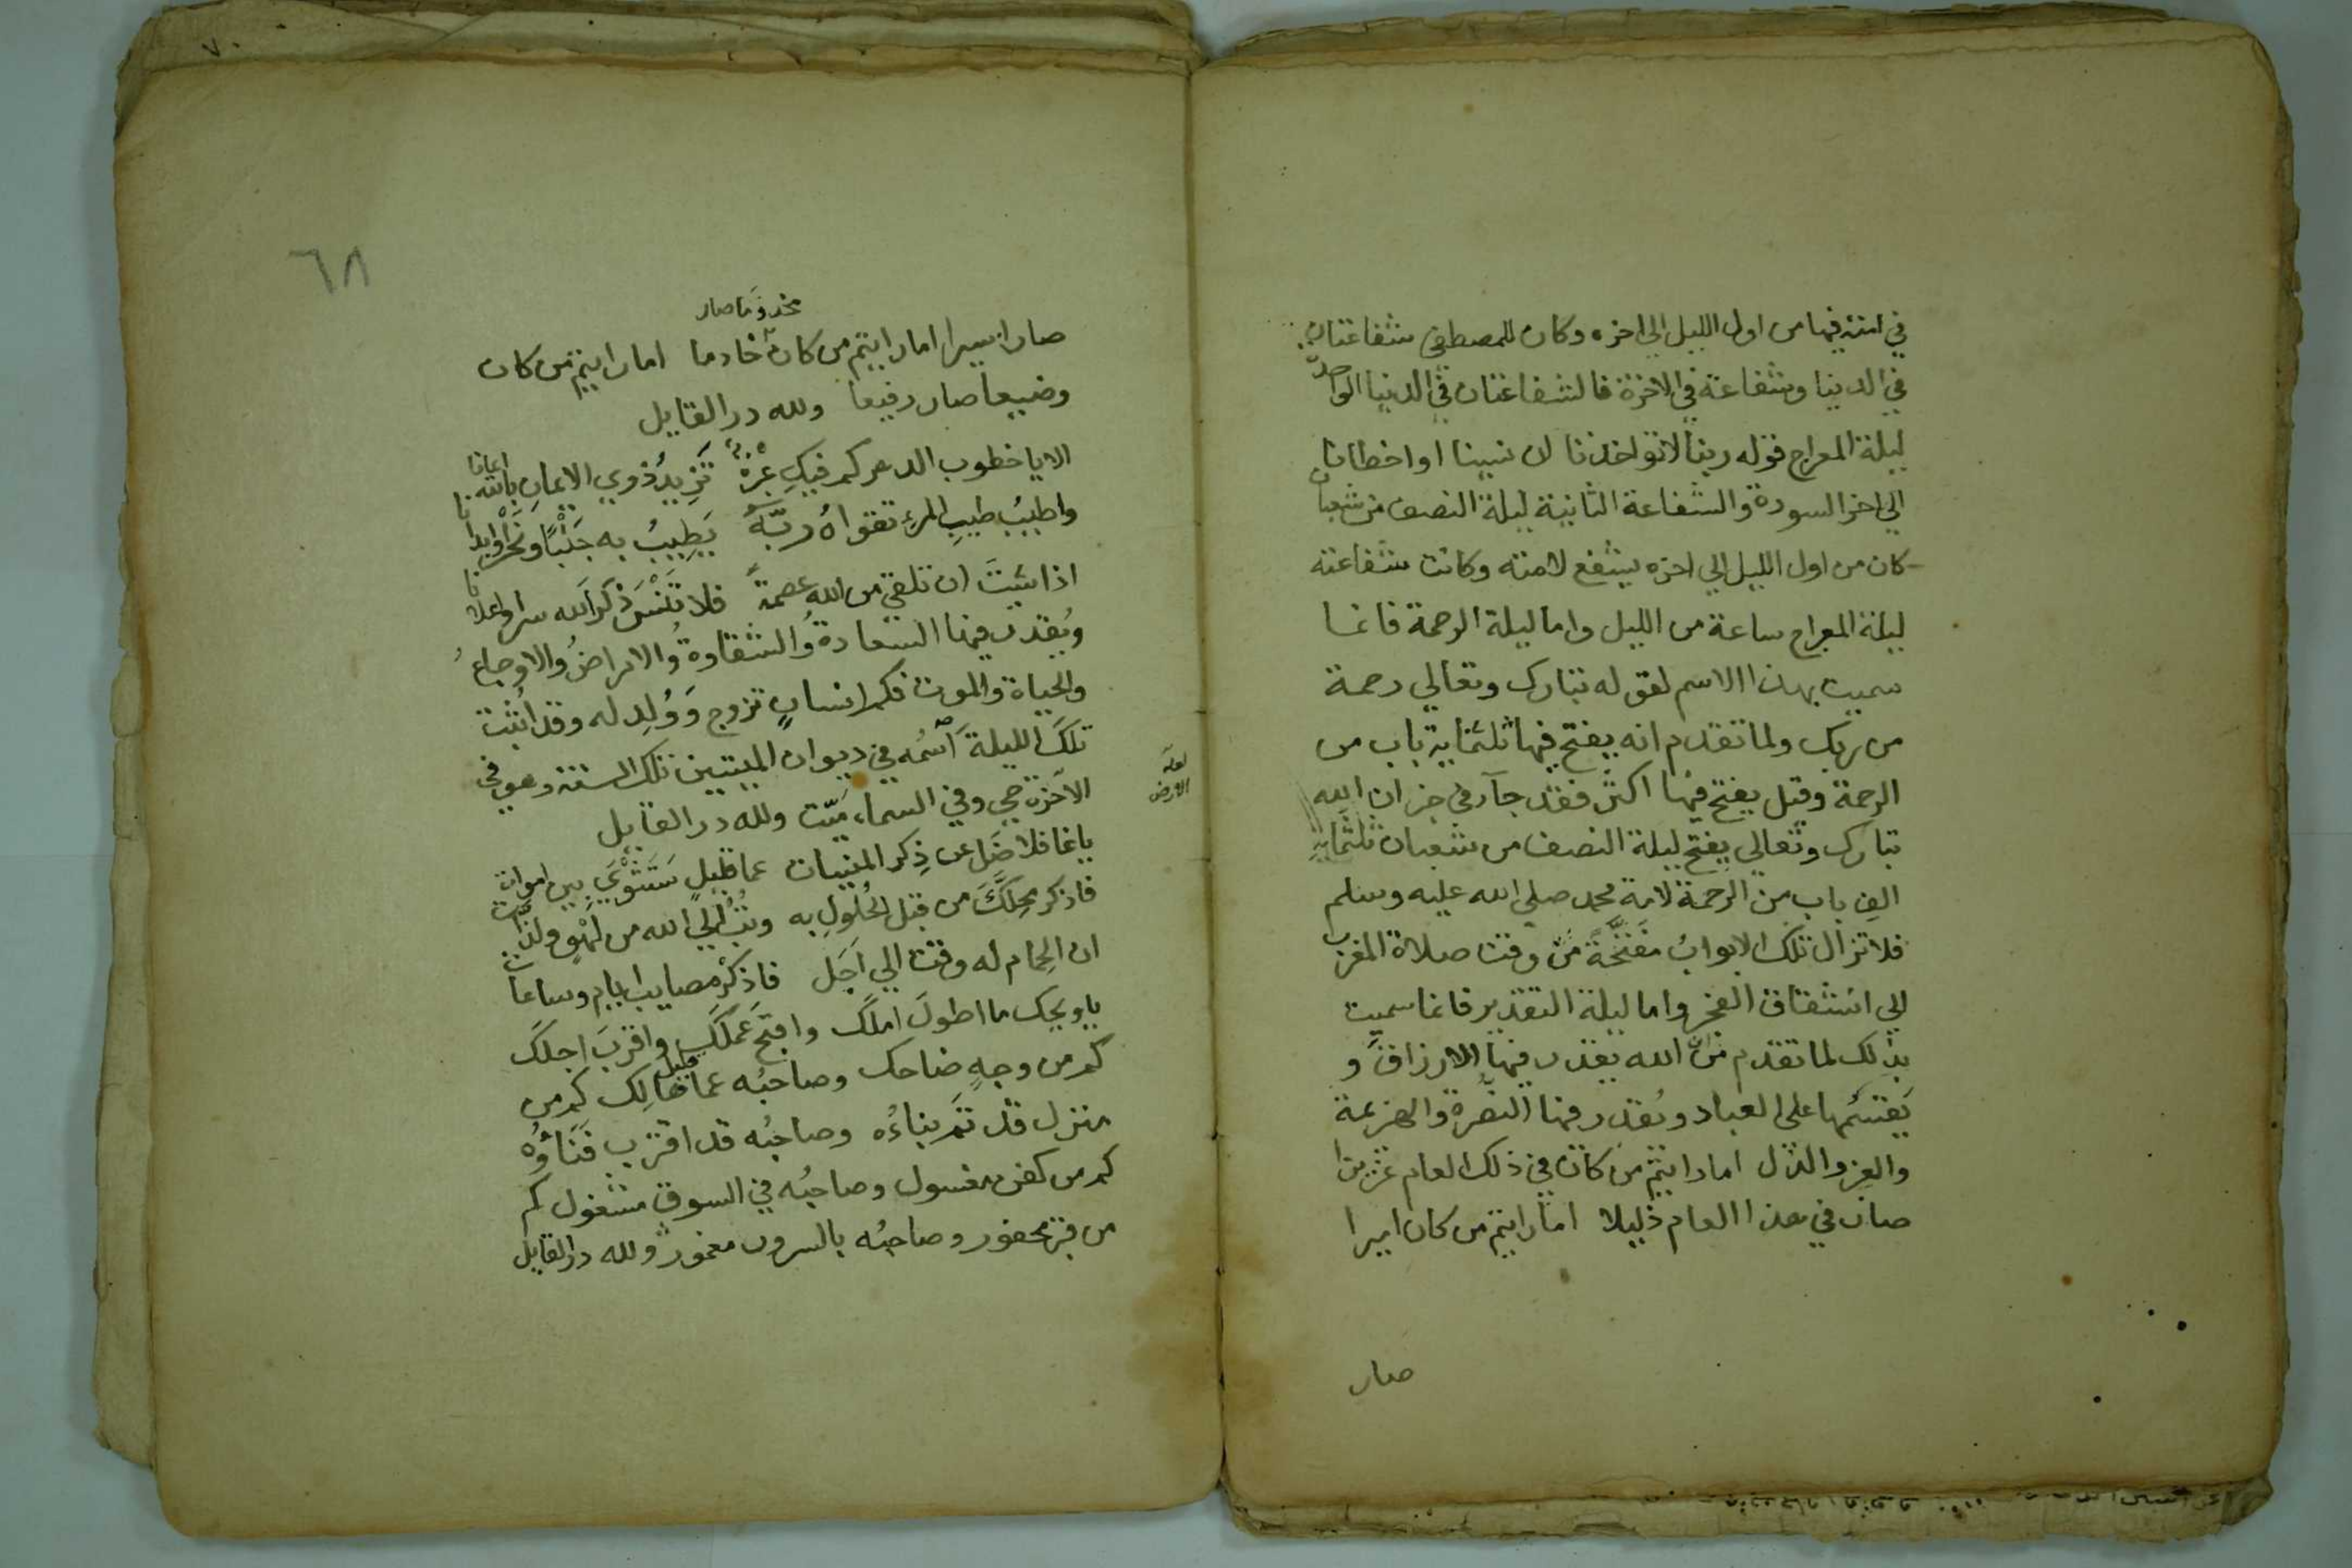 في امته فيها من اول الليل الى اخره وكان للمصطفى شفاعتان
في الدنيا وشفاعة في الاخرة فالشفاعتان في الدنيا الواحدة
ليلة المعراج قوله ربنا لا تواخذنا ان نسينا او اخطانا
الى اخر السورة والشفاعة الثانية ليلة النصف من شعبان
كان من اول الليل الي اخره يشفع لامته وكانت شفاعته
ليلة المعراج ساعة من الليل واما ليلة الرحمة فانما
سميت بهذا الاسم لقوله تبارك وتعالي رحمة
من ربك ولما تقدم انه يفتح فيها ثلثماية باب من
الرحمة وقيل يفتح فيها اكثر فقد جآء في خبر ان الله
تبارك وتعالي يفتح ليلة النصف من شعبان ثلثماية
الف باب من الرحمة لامة محمد صلى الله عليه وسلم
فلا تزال تلك الابواب مفتحة من وقت صلاة المغرب
الي انشقاق الفجر واما ليلة التقدير فانما سميت
بذلك لما تقدم من ان الله يقدر فيها الارزاق و
يقسمها على العباد ويقدر فيها النصرة والهزيمة
والعز والذل اما رايتم من كان في ذلك العام عزيزا
صار في هذا العام ذليلا اما رايتم من كان اميرا
صار
٦٨
مخدوما صار
صار اسيرا اما رايتم من كان خادما اما رايتم من كان
وضيعا صار رفيعا ولله در القايل
الا يا خطوب الدهر كم فيك عبرة تزيد ذوي الايمان بالله ايمانا
واطيب طيب المرء تقواه ربه يطيب به
اذا شيت ان تلقي من الله عصمة فلا تنس ذكر الله سرا واعلانا
ويقدر فيها السعادة والشقاوة والامراض والاوجاع
والحياة والموت فكم انسان تزوج وولد له وقد اثبت
تلك الليلة اسمه في ديوان الميتين تلك السنة وهو في
لعله الارض
الآخرة حي وفي السماء ميت ولله در القايل
يا غافلا ضل عن ذكر المنيات عما قليل ستثوي بين اموات
فاذكر محلك من قبل الحلول به وتب الي الله من لهو ولذات
ان الحمام له وقت الي اجل فاذكر مصايب ايام وساعات
يا ويحك ما اطول املك واقبح عملك واقرب اجلك
كم من وجه ضاحك وصاحبه عما قليل هالك كم من
منزل قد تم بناءه وصاحبه قد اقترب فناؤه
كم من كفن مغسول وصاحبه في السوق مشغول كم
من قبر محفور وصاحبه بالسرور مغمور ولله در القايل